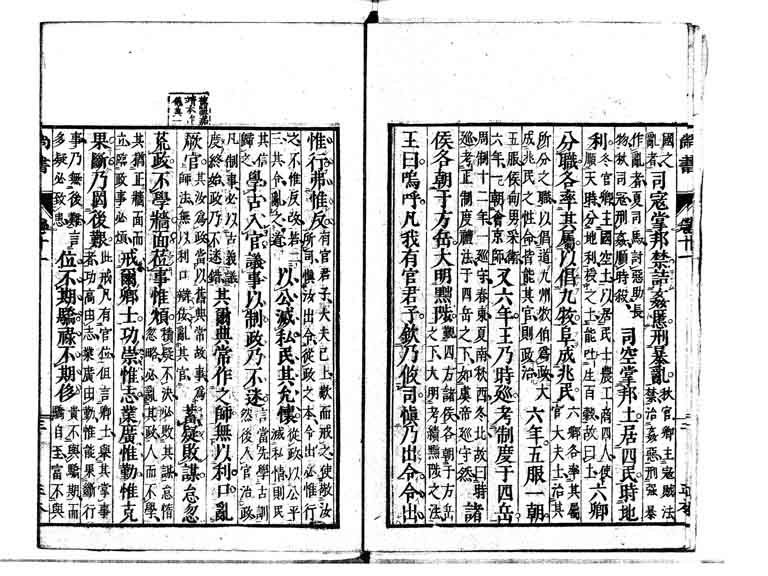 尚書 卷十一
國之
亂者
司寇掌邦禁詰姦慝刑暴亂
秋官卿主寇賊法
禁治姦惡刑強暴
作亂者夏司馬討惡助長
物秋司寇刑姦順時殺
司空掌邦土居四民時地
利
冬官卿主國空土以居民士農工商四人使
順天時分地利授之土能吐生百穀故曰土
六卿
分職各率其屬以倡九牧阜成兆民
六卿各率其屬
官大夫士治其
所分之職以倡道九州牧伯為政大
成兆民之性命皆能其官則政治
六年五服一朝
五服侯甸男采衛
六年一朝會京師
又六年王乃時巡考制度于四岳
周制十二年一巡守春東夏南秋西冬北故曰時
巡考正制度禮法于四岳之下如虞帝巡守然
諸
侯各朝于方岳大明黜陟
覲四方諸侯各朝于方岳
之下大明考績黜陟之法
王曰嗚呼凡我有官君子欽乃攸司慎乃出令令出
惟行弗惟反
有官君子大夫已上歎而戒之使敬汝
所司慎汝出令從政之本令出必惟行
之不惟反改若二
三其令亂之道
以公滅私民其允懷
從政以公平
滅私情則民
其信
歸之
學古入官議事以制政乃不迷
言當先學古訓
然後入官治政
凡制事必以古義議
度終始政乃不迷錯
其爾典常作之師無以利口亂
厥官
其汝為政當以舊典常故事為
師法無以利口辯佞亂其官
蓄疑敗謀怠忽
荒政不學牆面莅事惟煩
積疑不決必敗其謀怠惰
忽略必亂其政人而不學
其猶正牆面而
立臨政事必煩
戒爾卿士功崇惟志業廣惟勤惟克
果斷乃罔後艱
此戒凡有官位但言卿士舉其掌事
者功高由志業廣由勤惟能果斷行
事乃無後難言
多疑必致患
位不期驕祿不期侈
貴不與驕期而
驕自至富不與
尚書 卷十一